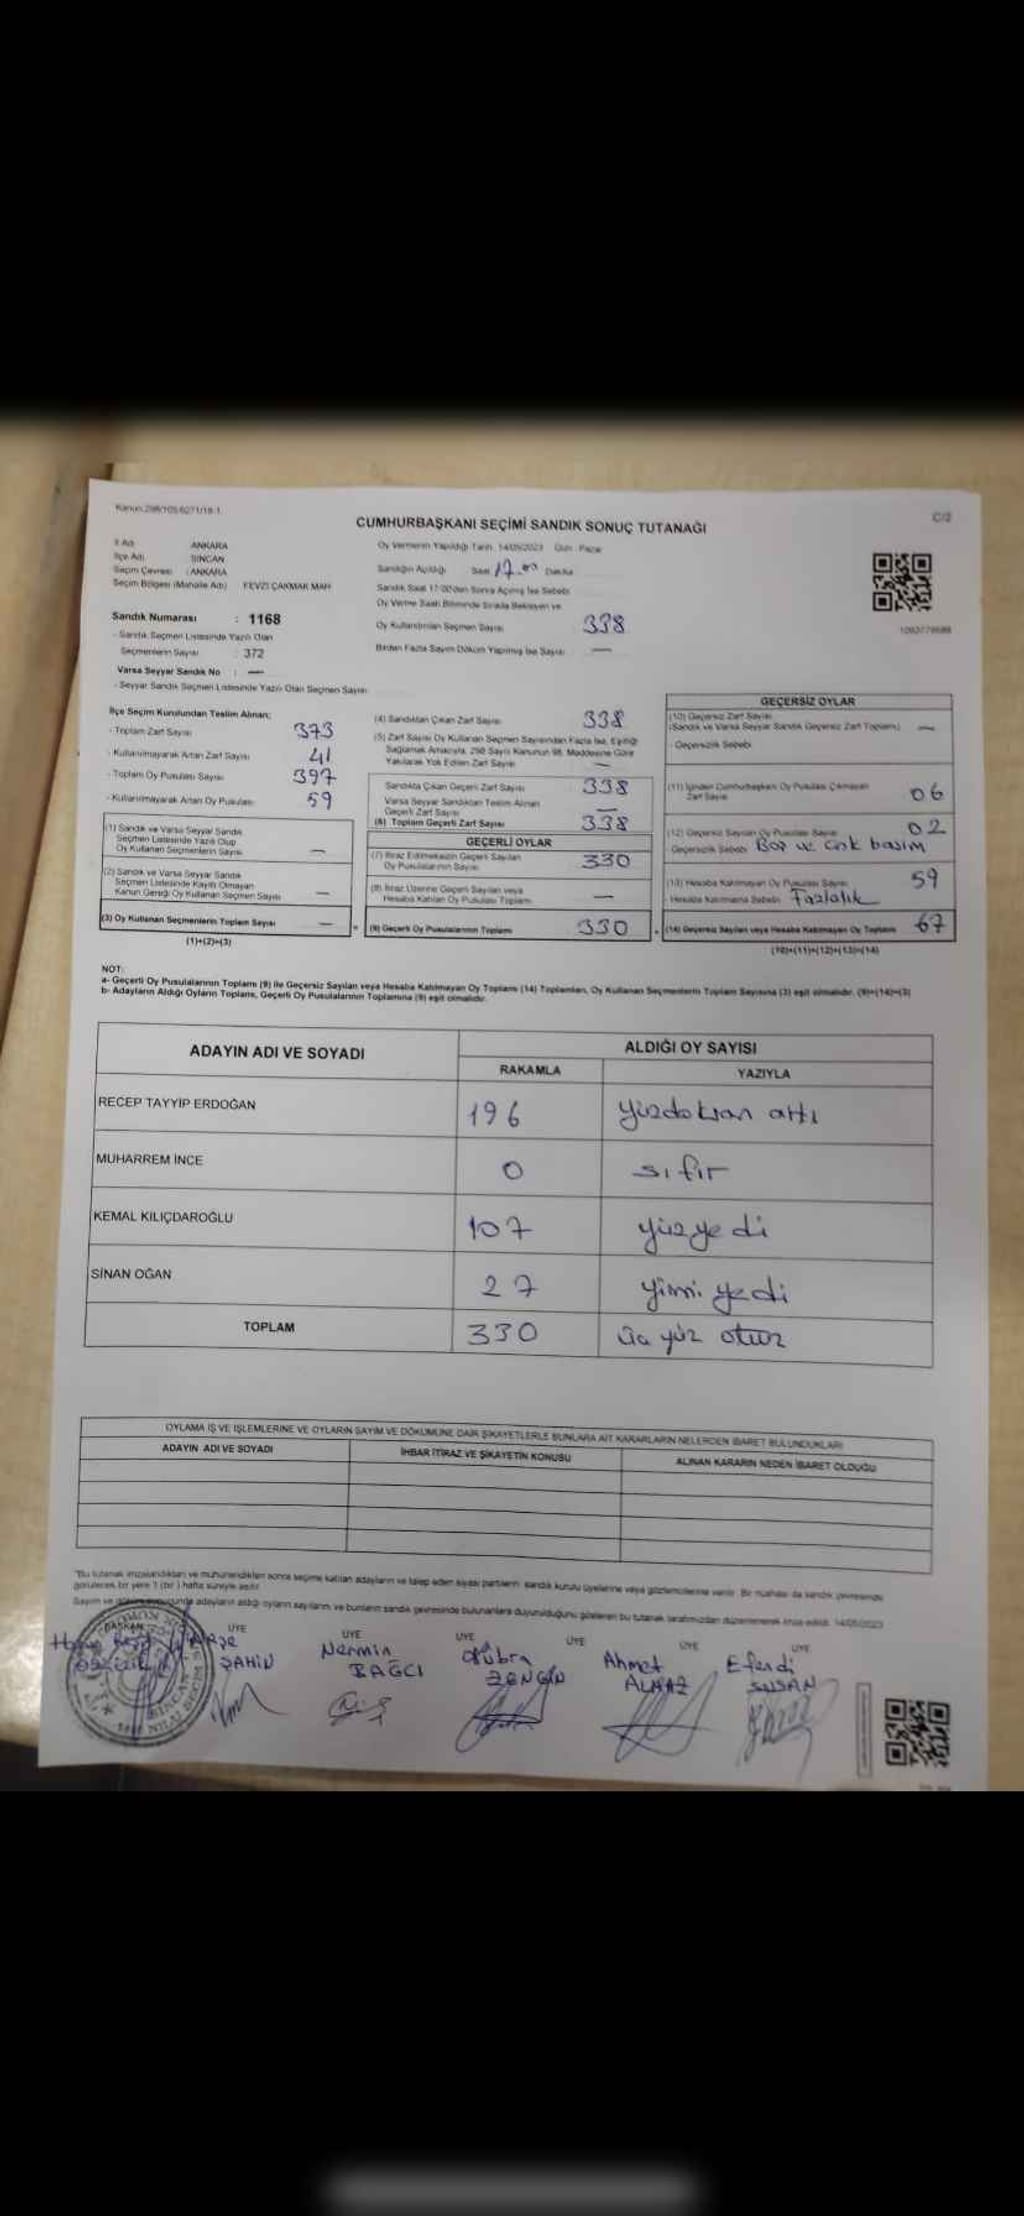 Kanun:298/105,6271/18-1
C/2
CUMHURBAŞKANI SEÇİMİ SANDIK SONUÇ TUTANAĞI
İl Adı ANKARA
İlçe Adı SİNCAN
Seçim Çevresi : ANKARA
Seçim Bölgesi (Mahalle Adı) FEVZİ ÇAKMAK MAH
Sandık Numarası : 1168
- Sandık Seçmen Listesinde Yazılı Olan
Seçmenlerin Sayısı : 372
Varsa Seyyar Sandık No : —
- Seyyar Sandık Seçmen Listesinde Yazılı Olan Seçmen Sayısı
Oy Vermenin Yapıldığı Tarih 14/05/2023 Gün : Pazar
Sandığın Açıldığı Saat 17.00 Dakika
Sandık Saat 17:00'den Sonra Açılmış İse Sebebi
Oy Verme Saati Bitiminde Sırada Bekleyen ve
Oy Kullandırılan Seçmen Sayısı 338
Birden Fazla Sayım Döküm Yapılmış İse Sayısı —
İlçe Seçim Kurulundan Teslim Alınan;
- Toplam Zarf Sayısı 373
- Kullanılmayarak Artan Zarf Sayısı 41
- Toplam Oy Pusulası Sayısı 397
- Kullanılmayarak Artan Oy Pusulası 59
(1) Sandık ve Varsa Seyyar Sandık
Seçmen Listesinde Yazılı Olup
Oy Kullanan Seçmenlerin Sayısı —
(2) Sandık ve Varsa Seyyar Sandık
Seçmen Listesinde Kayıtlı Olmayan
Kanun Gereği Oy Kullanan Seçmen Sayısı —
(3) Oy Kullanan Seçmenlerin Toplam Sayısı —
(1)+(2)=(3)
(4) Sandıktan Çıkan Zarf Sayısı 338
(5) Zarf Sayısı Oy Kullanan Seçmen Sayısından Fazla İse, Eşitliği
Sağlamak Amacıyla, 298 Sayılı Kanunun 98. Maddesine Göre
Yakılarak Yok Edilen Zarf Sayısı —
Sandıkta Çıkan Geçerli Zarf Sayısı 338
Varsa Seyyar Sandıktan Teslim Alınan
Geçerli Zarf Sayısı —
(6) Toplam Geçerli Zarf Sayısı 338
GEÇERLİ OYLAR
(7) İtiraz Edilmeksizin Geçerli Sayılan
Oy Pusulalarının Sayısı 330
(8) İtiraz Üzerine Geçerli Sayılan veya
Hesaba Katılan Oy Pusulası Toplamı —
(9) Geçerli Oy Pusulalarının Toplamı 330
GEÇERSİZ OYLAR
(10) Geçersiz Zarf Sayısı
(Sandık ve Varsa Seyyar Sandık Geçersiz Zarf Toplamı) —
- Geçersizlik Sebebi
(11) İçinden Cumhurbaşkanı Oy Pusulası Çıkmayan
Zarf Sayısı 06
(12) Geçersiz Sayılan Oy Pusulası Sayısı 02
Geçersizlik Sebebi Boş ve çok basım
(13) Hesaba Katılmayan Oy Pusulası Sayısı 59
Hesaba Katılmama Sebebi Fazlalık
(14) Geçersiz Sayılan veya Hesaba Katılmayan Oy Toplamı 67
(10)+(11)+(12)+(13)=(14)
NOT:
a- Geçerli Oy Pusulalarının Toplamı (9) ile Geçersiz Sayılan veya Hesaba Katılmayan Oy Toplamı (14) Toplamları, Oy Kullanan Seçmenlerin Toplam Sayısına (3) eşit olmalıdır. (9)+(14)=(3)
b- Adayların Aldığı Oyların Toplamı, Geçerli Oy Pusulalarının Toplamına (9) eşit olmalıdır.
ADAYIN ADI VE SOYADI ALDIĞI OY SAYISI
RAKAMLA YAZIYLA
RECEP TAYYİP ERDOĞAN 196 yüzdoksan altı
MUHARREM İNCE 0 sıfır
KEMAL KILIÇDAROĞLU 107 yüzyedi
SİNAN OĞAN 27 yirmi yedi
TOPLAM 330 üç yüz otuz
OYLAMA İŞ VE İŞLEMLERİNE VE OYLARIN SAYIM VE DÖKÜMÜNE DAİR ŞİKAYETLERLE BUNLARA AİT KARARLARIN NELERDEN İBARET BULUNDUKLARI
ADAYIN ADI VE SOYADI İHBAR İTİRAZ VE ŞİKAYETİN KONUSU ALINAN KARARIN NEDEN İBARET OLDUĞU
"Bu tutanak imzalandıktan ve mühürlendikten sonra seçime katılan adayların ve talep eden siyasi partilerin sandık kurulu üyelerine veya gözlemcilerine verilir. Bir nüshası da sandık çevresinde
görülecek bir yere 1 (bir) hafta süreyle asılır.
adayların aldığı oyların sayılarını ve bunların sandık çevresinde bulunanlara duyurulduğunu gösteren bu tutanak tarafımızdan düzenlenerek imza edildi. 14/05/2023
BAŞKAN ÜYE ÜYE ÜYE ÜYE ÜYE ÜYE
ŞAHİN
Nermin BAĞCI
Kübra ZENGİN
Ahmet ALMAZ
Efendi SUSAN